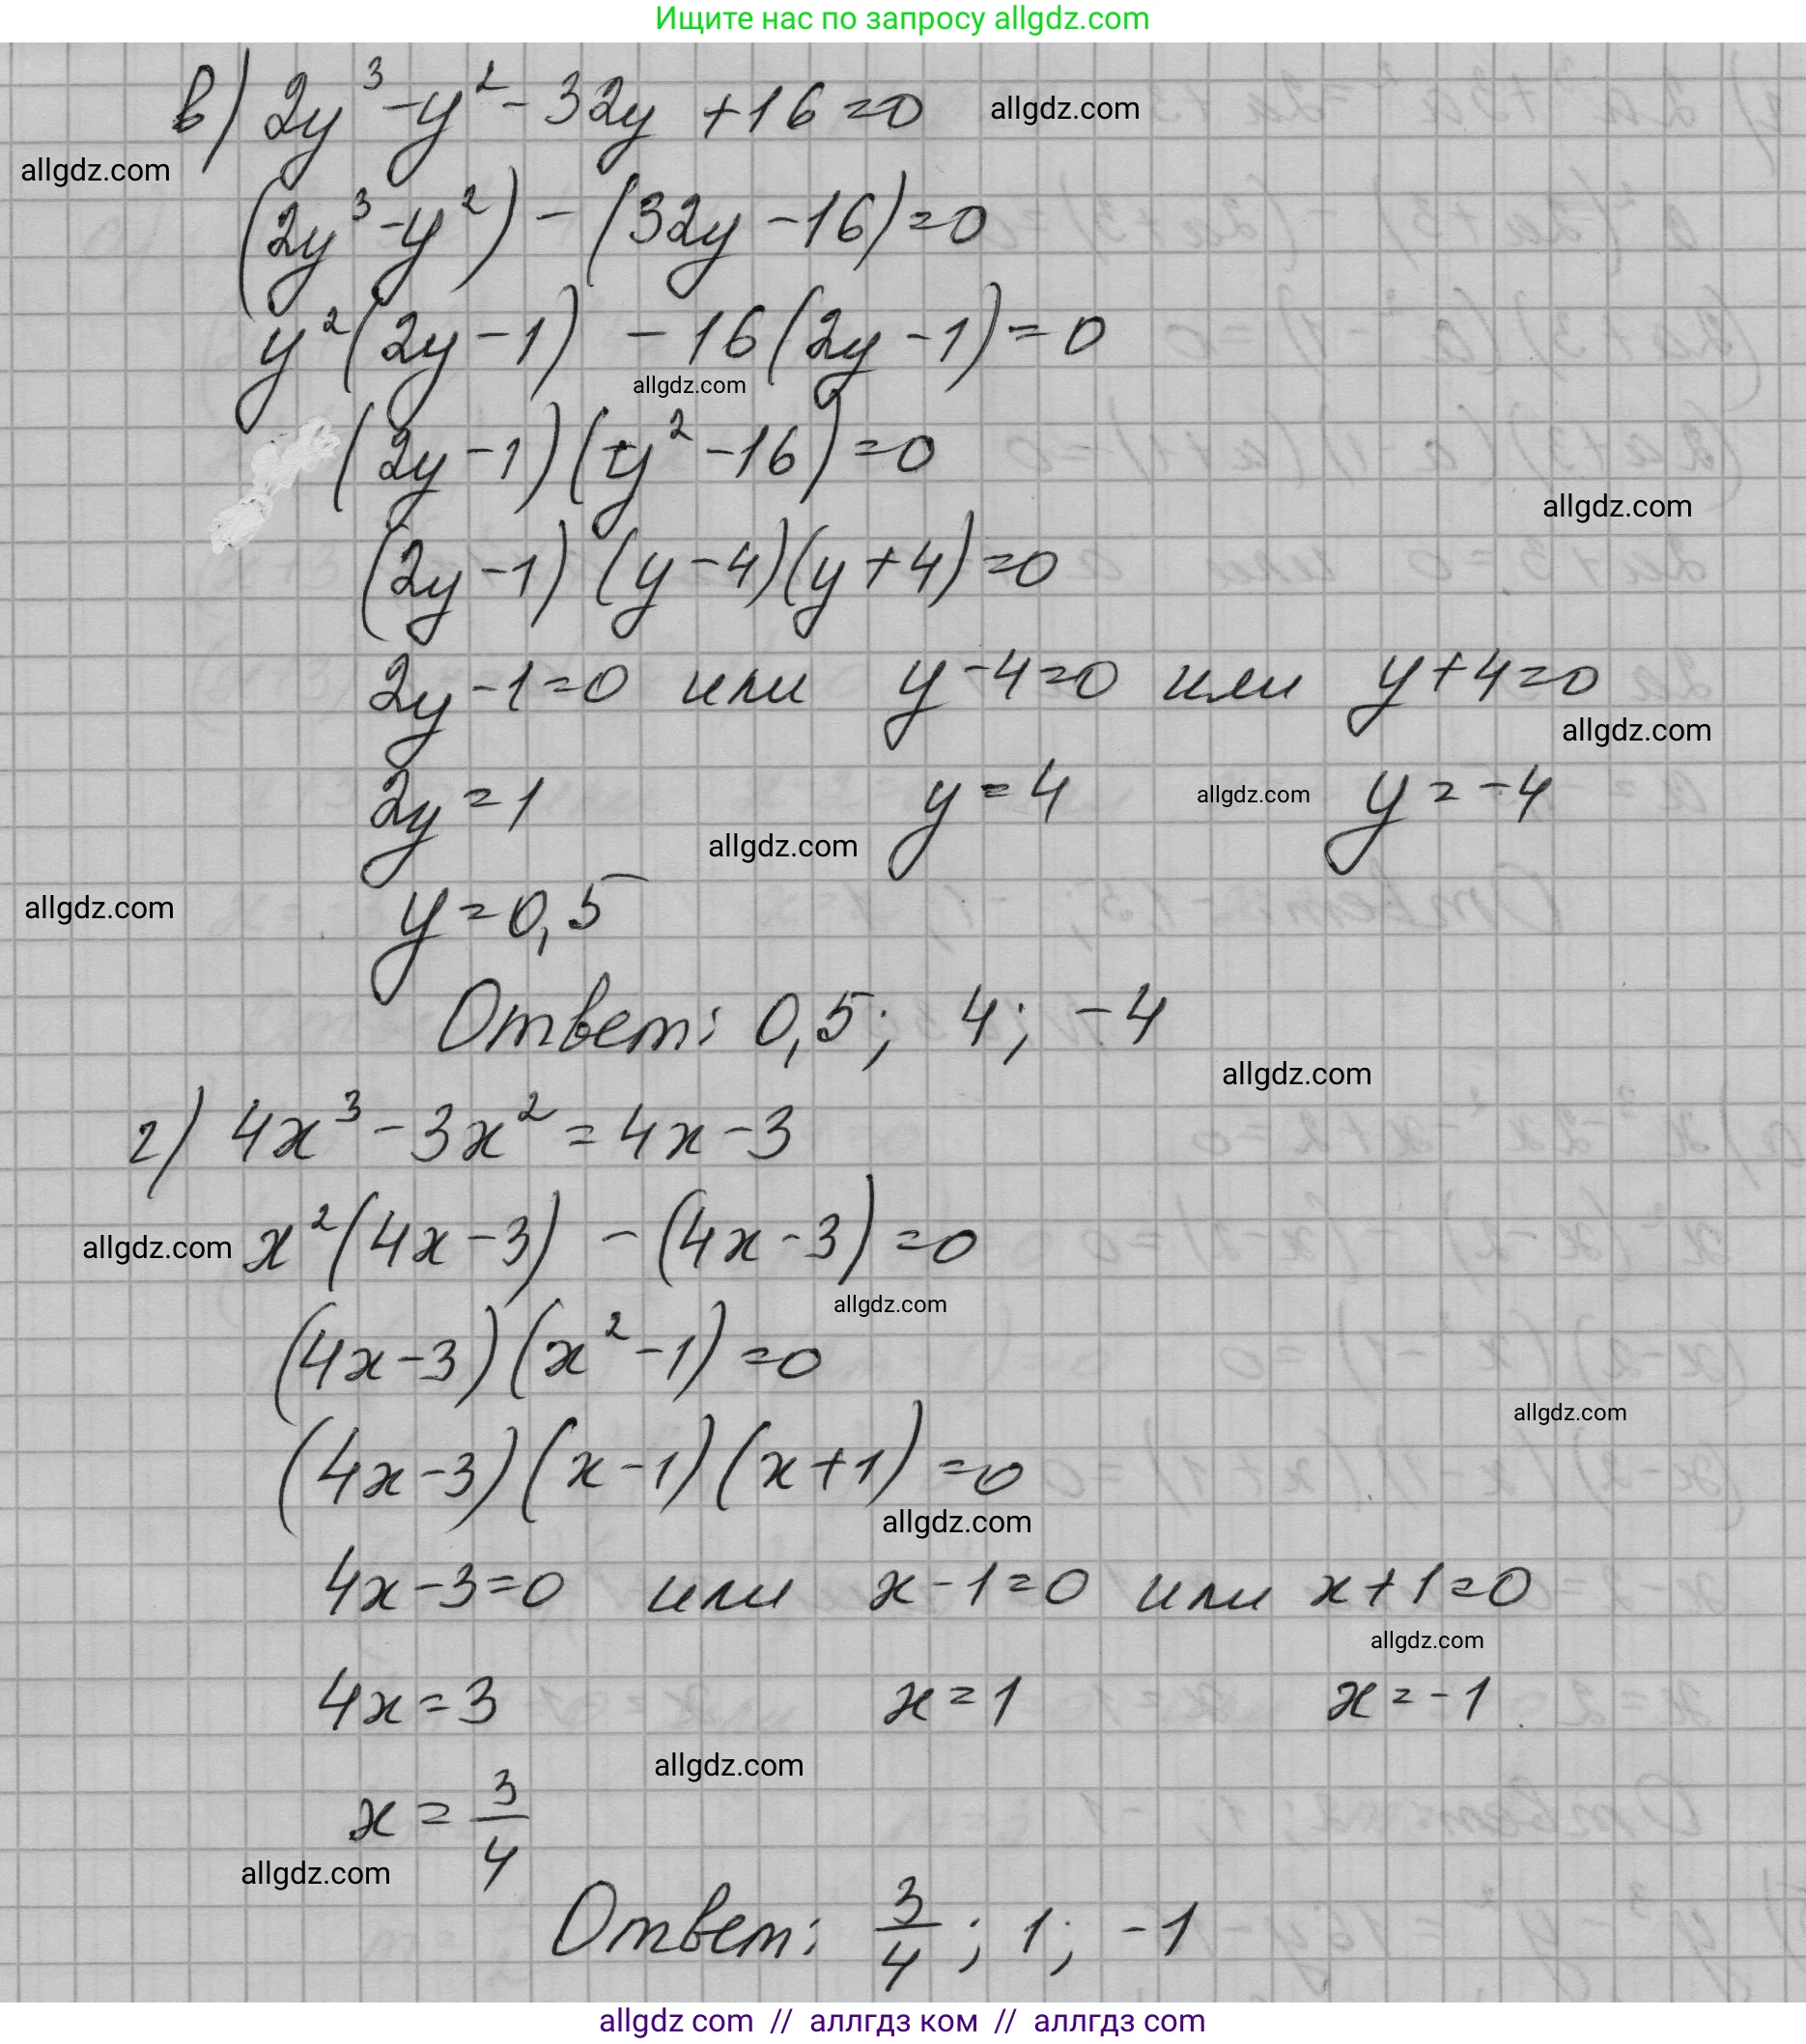 Ищите нас по запросу allgdz.com
в) 2y³ - y² - 32y + 16 = 0 allgdz.com
allgdz.com
(2y³ - y²) - (32y - 16) = 0
y²(2y - 1) - 16(2y - 1) = 0
allgdz.com
(2y - 1)(y² - 16) = 0
allgdz.com
(2y - 1)(y - 4)(y + 4) = 0
2y - 1 = 0 или y - 4 = 0 или y + 4 = 0
allgdz.com
2y = 1 y = 4 allgdz.com y = -4
allgdz.com
allgdz.com y = 0,5
Ответ: 0,5; 4; -4
allgdz.com
г) 4x³ - 3x² = 4x - 3
allgdz.com x²(4x - 3) - (4x - 3) = 0
allgdz.com
(4x - 3)(x² - 1) = 0
allgdz.com
(4x - 3)(x - 1)(x + 1) = 0
allgdz.com
4x - 3 = 0 или x - 1 = 0 или x + 1 = 0
allgdz.com
4x = 3 x = 1 x = -1
allgdz.com
x = 3/4
allgdz.com
Ответ: 3/4; 1; -1
allgdz.com // аллгдз ком // аллгдз com